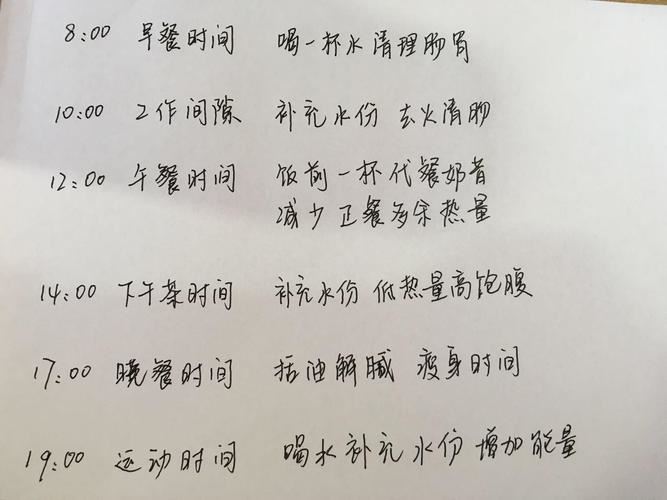 8:00 早餐时间 喝一杯水清理肠胃
10:00 工作间隙 补充水份 去火清肠
12:00 午餐时间 饭前一杯代餐奶昔
减少正餐多余热量
14:00 下午茶时间 补充水份 低热量高饱腹
17:00 晚餐时间 括油解腻 瘦身时间
19:00 运动时间 喝水补充水份 增加能量